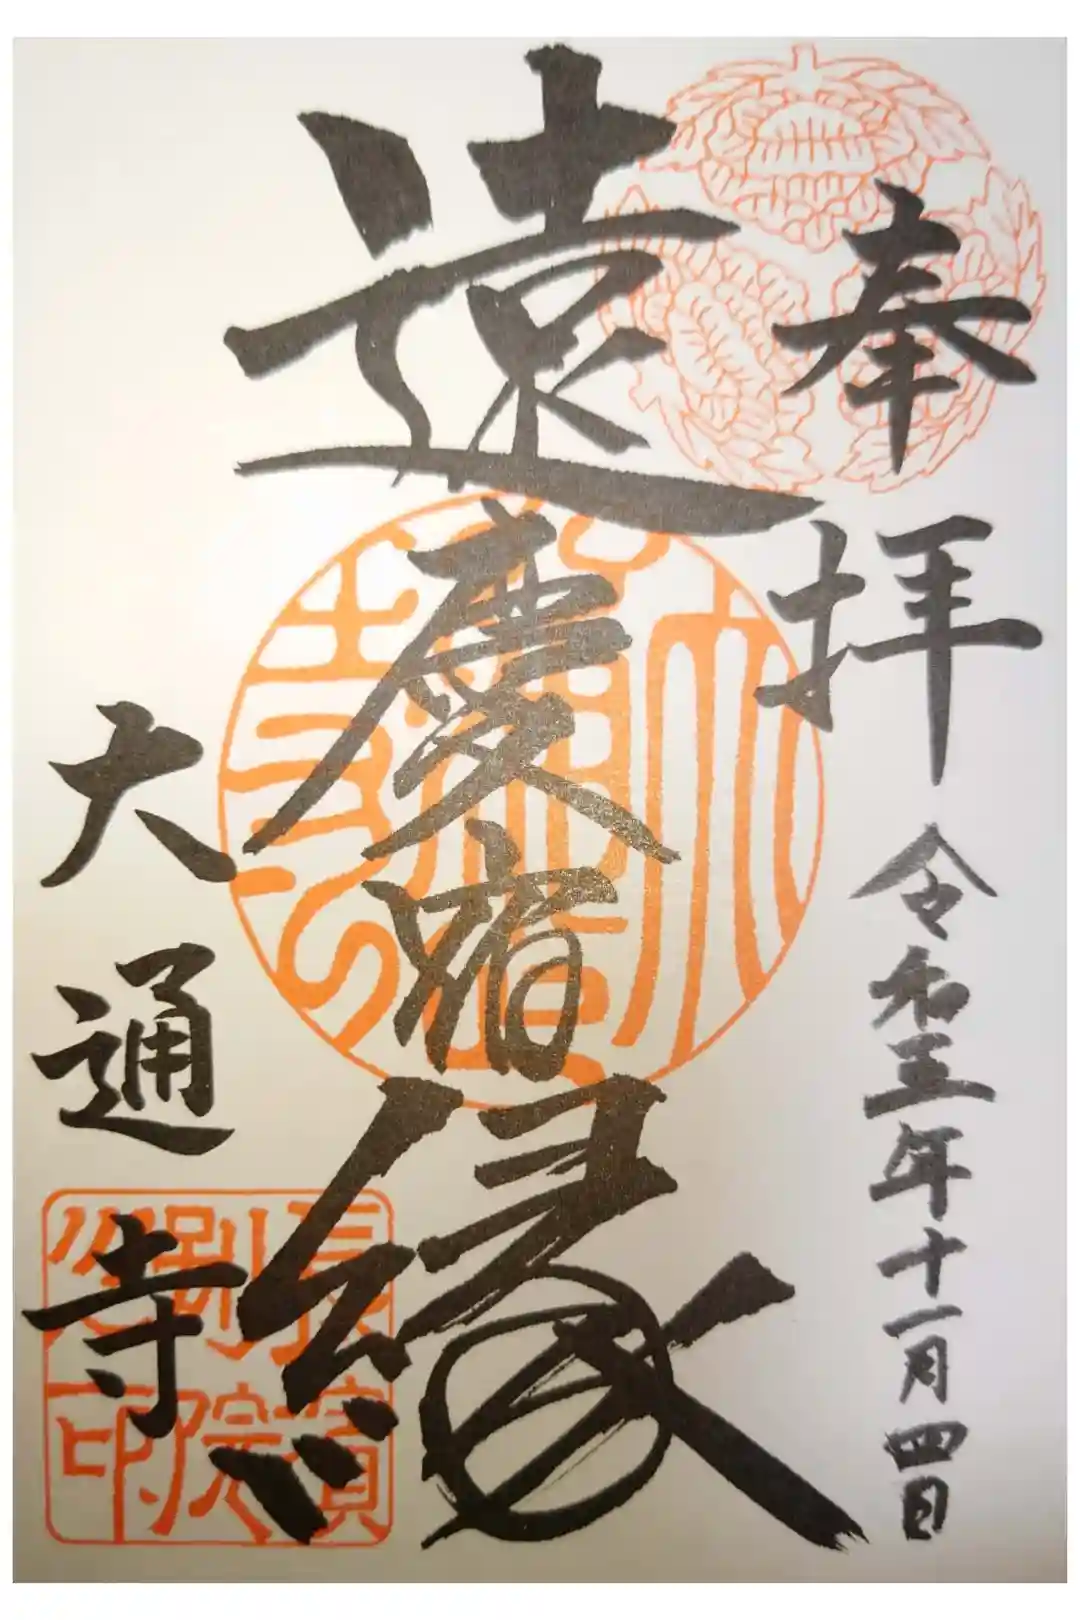 奉拝
令和三年十一月四日
遠慶宿縁
大通寺
長濱
別院
之印